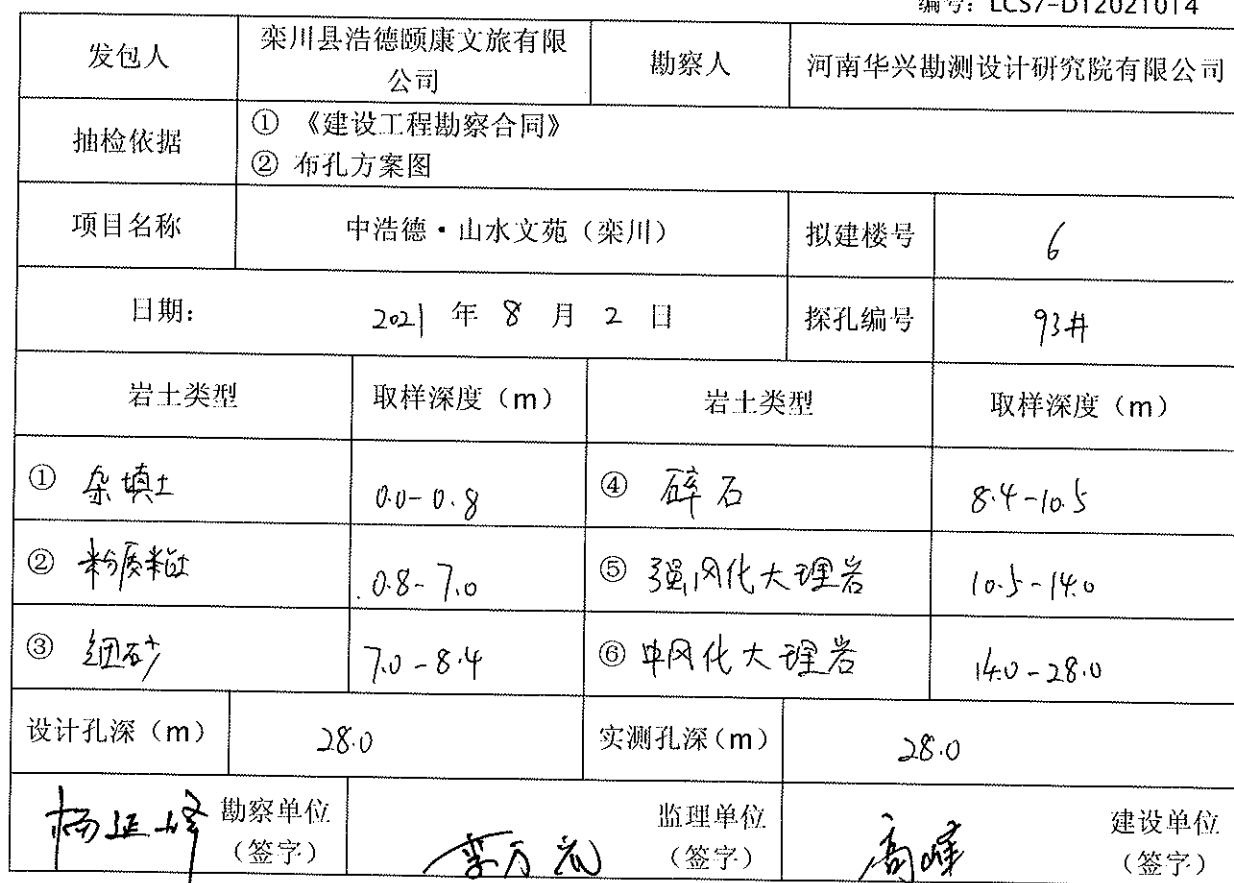 编号: LCS7-D12021014
发包人
栾川县浩德颐康文旅有限
公司
勘察人
河南华兴勘测设计研究院有限公司
抽检依据
① 《建设工程勘察合同》
② 布孔方案图
项目名称
中浩德·山水文苑（栾川）
拟建楼号
6
日期: 2021 年 8 月 2 日
探孔编号
93#
岩土类型
取样深度（m）
岩土类型
取样深度（m）
① 杂填土
0.0-0.8
④ 碎石
8.4-10.5
② 粉质粘土
0.8-7.0
⑤ 强风化大理岩
10.5-14.0
③ 细砂
7.0-8.4
⑥ 中风化大理岩
14.0-28.0
设计孔深（m）
28.0
实测孔深(m)
28.0
杨延峰 勘察单位
（签字）
监理单位
（签字）
高峰 建设单位
（签字）